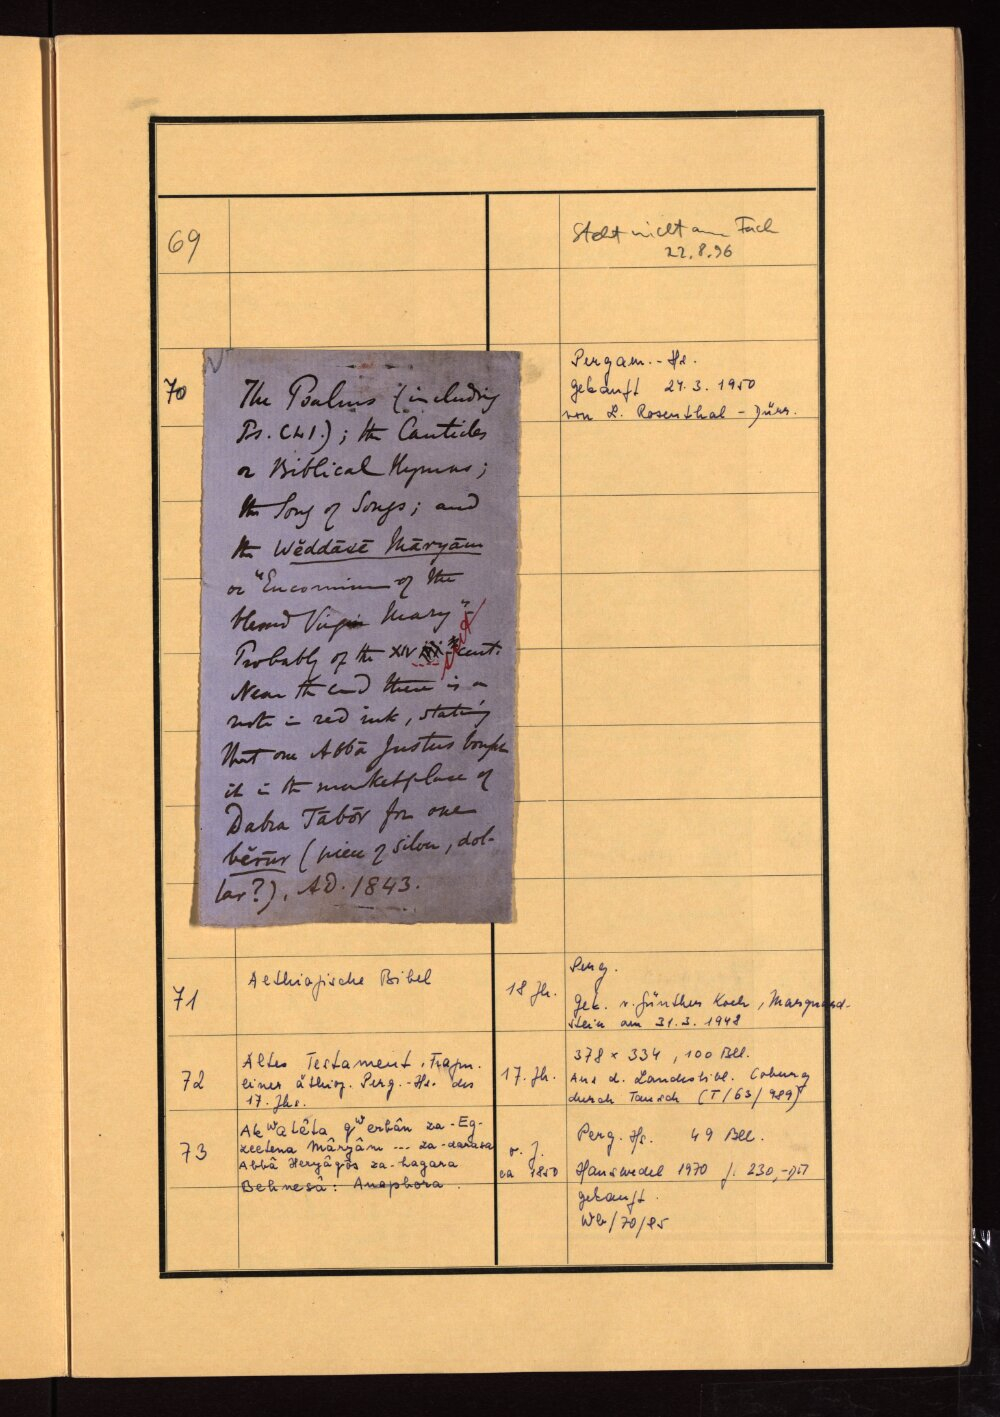 69
Steht nicht am Fach
22.8.96
70
The Psalms (including
Ps. CLI.); the Canticles
or Biblical Hymns;
the Song of Songs; and
the Wĕddāsē Māryām
or "Encomium of the
blessed Virgin Mary"
Probably of the XIV cent.
Near the end there is a
note in red ink, stating
that one Abbā Justus bought
it in the marketplace of
Dabra Tābōr for one
bĕrūr (piece of silver, dol-
lar?), A.D. 1843.
Pergam.-Hs.
gekauft 24.3.1950
von L. Rosenthal -
71
Aethiopische Bibel
18 Jh.
Perg.
Gek. v. Günther Koch, Marquard-
stein am 31.3.1948
72
Altes Testament, Fragm.
einer äthiop. Perg.-Hs. des
17. Jhs.
17. Jh.
378 x 334, 100 Bll.
Aus d. Landesbibl. Coburg
durch Tausch (T/63/989)
73
Akʷatêta qʷerbân za-Eg-
zeetena Mâryâm --- za-darasa
Abbâ Heryâqôs za-hagara
Behnesâ: Anaphora.
o. J.
ca 1850
Perg. Hs. 49 Bll.
Hauswedel 1970 f. 230,-DM
gekauft.
Wb/70/85